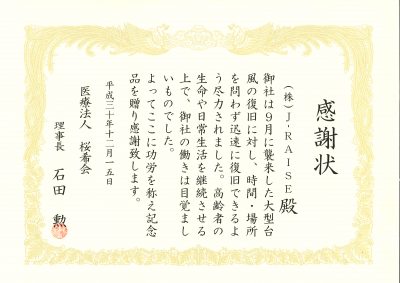 感謝状
（株）J'RAISE殿
御社は９月に襲来した大型台
風の復旧に対し、時間・場所
を問わず迅速に復旧できるよ
う尽力されました。高齢者の
生命や日常生活を継続させる
上で、御社の働きは目覚まし
いものでした。
よってここに功労を称え記念
品を贈り感謝致します。
平成三十年十二月一五日
医療法人　桜希会
理事長　石田　勲